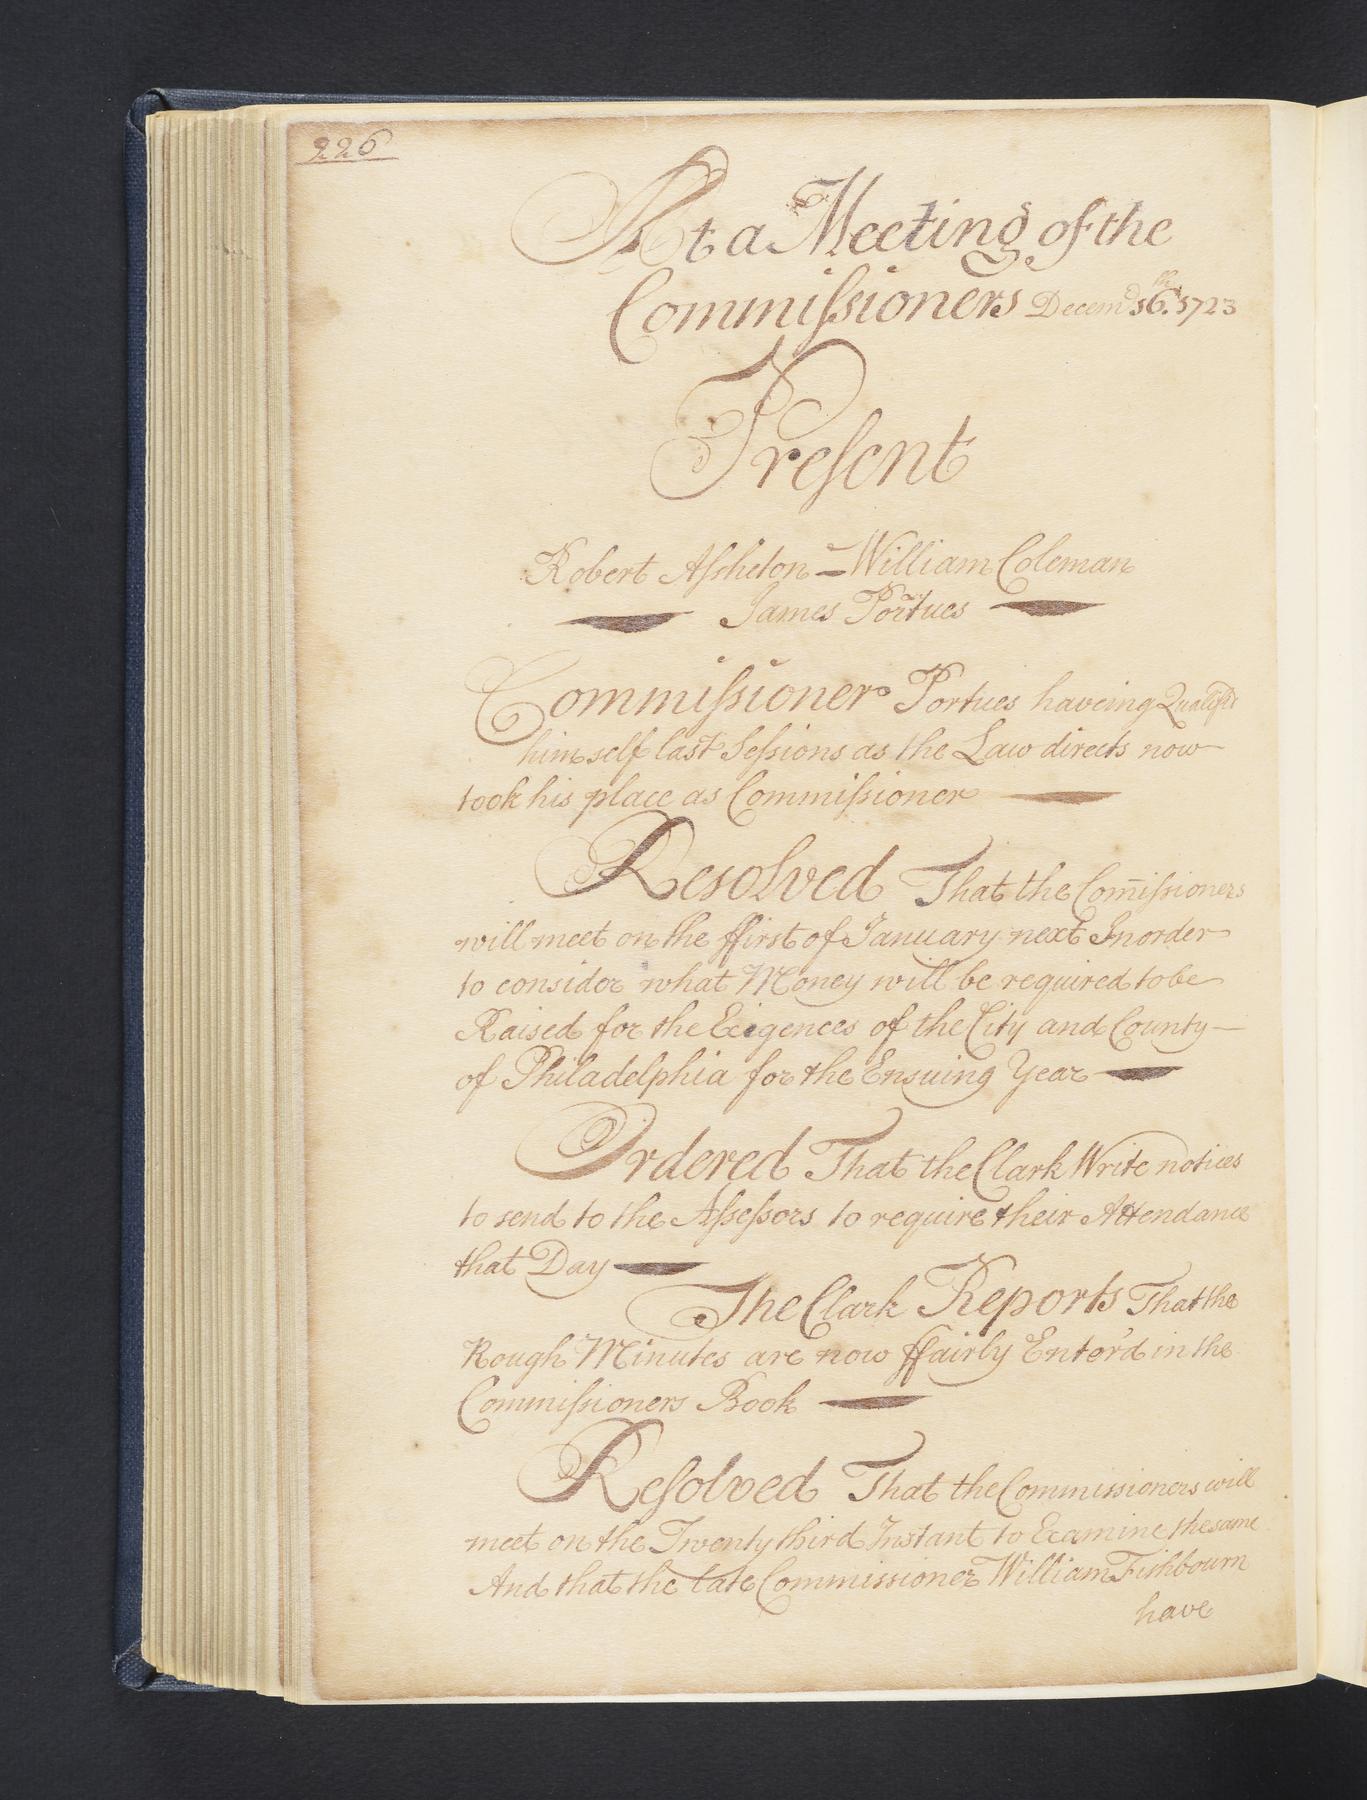 226
At a Meeting of the
Commiſsioners Decemr 16th. 1723
Preſent
Robert Aſsheton = William Coleman
James Portues
Commiſsioner Portues haveing Qualifyd
himself last Seſsions as the Law directs now
took his place as Commiſsioner
Resolved That the Com̄iſsioners
will meet on the ffirst of January next In order
to consider what Money will be required to be
Raised for the Exigences of the City and County
of Philadelphia for the Ensuing Year
Ordered That the Clark Write notices
to send to the Aſseſsors to require their Attendance
that Day
The Clark Reports That the
Rough Minutes are now ffairly Enter'd in the
Commiſsioners Book
Reſolved That the Commissioners will
meet on the Twenty third Instant to Examine the same
And that the late Commissioner William Fishbourn
have